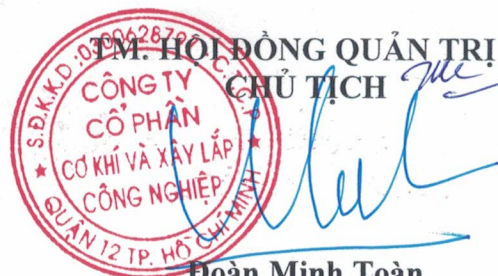 TM. HỘI ĐỒNG QUẢN TRỊ
CHỦ TỊCH
CÔNG TY
CỔ PHẦN
CƠ KHÍ VÀ XÂY LẮP
CÔNG NGHIỆP
QUẬN 12 TP. HỒ CHÍ MINH
Đoàn Minh Toàn